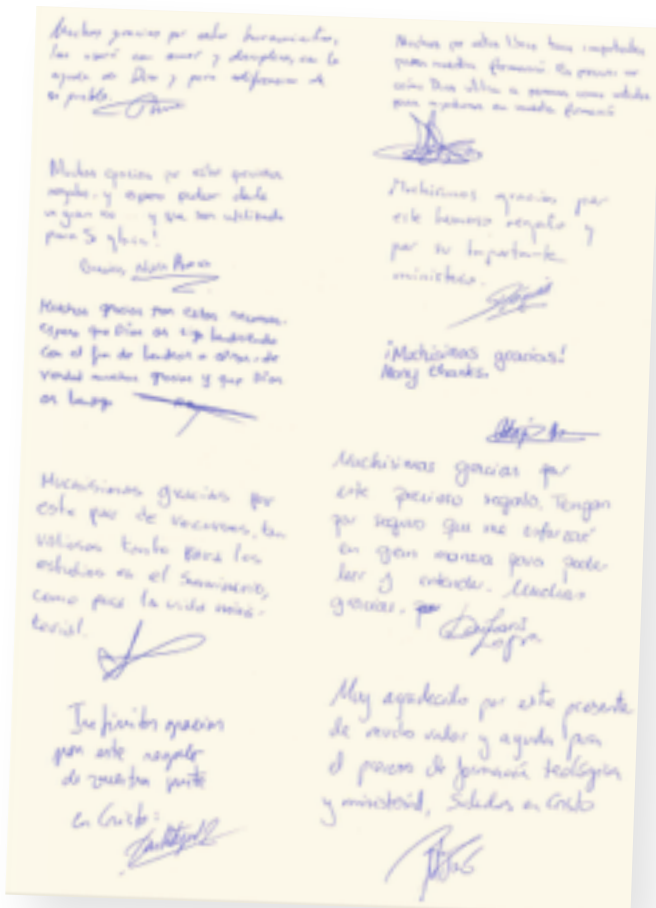 Muchas gracias por estas herramientas,
las usaré con amor y disciplina, con la
ayuda de Dios y para edificación de
su pueblo.
Muchas gracias por estos preciosos
regalos, y espero poder darle
un gran uso y que sean utilizados
para Su gloria!
Gracias,
Muchas gracias por estos recursos.
espero que Dios os siga bendiciendo
con el fin de bendecir a otros, de
verdad muchas gracias y que Dios
os bendiga
Muchísimas gracias por
este par de recursos, tan
valiosos tanto para los
estudios en el Seminario,
como para la vida minis-
terial.
Infinitas gracias
por este regalo
de vuestra parte
en Cristo:
Muchas por estos libros
para nuestra formación.
como Dios utiliza a personas como ustedes
para ayudarnos en nuestra formación
Muchísimas gracias por
este hermoso regalo y
por su importante
ministerio.
¡Muchísimas gracias!
Many thanks.
Muchísimas gracias por
este precioso regalo. Tengan
por seguro que me esforzaré
en gran manera para poder
leer y entender. Muchas
gracias.
Muy agradecido por este presente
de mucho valor y ayuda para
el proceso de formación teológica
y ministerial, Saludos en Cristo